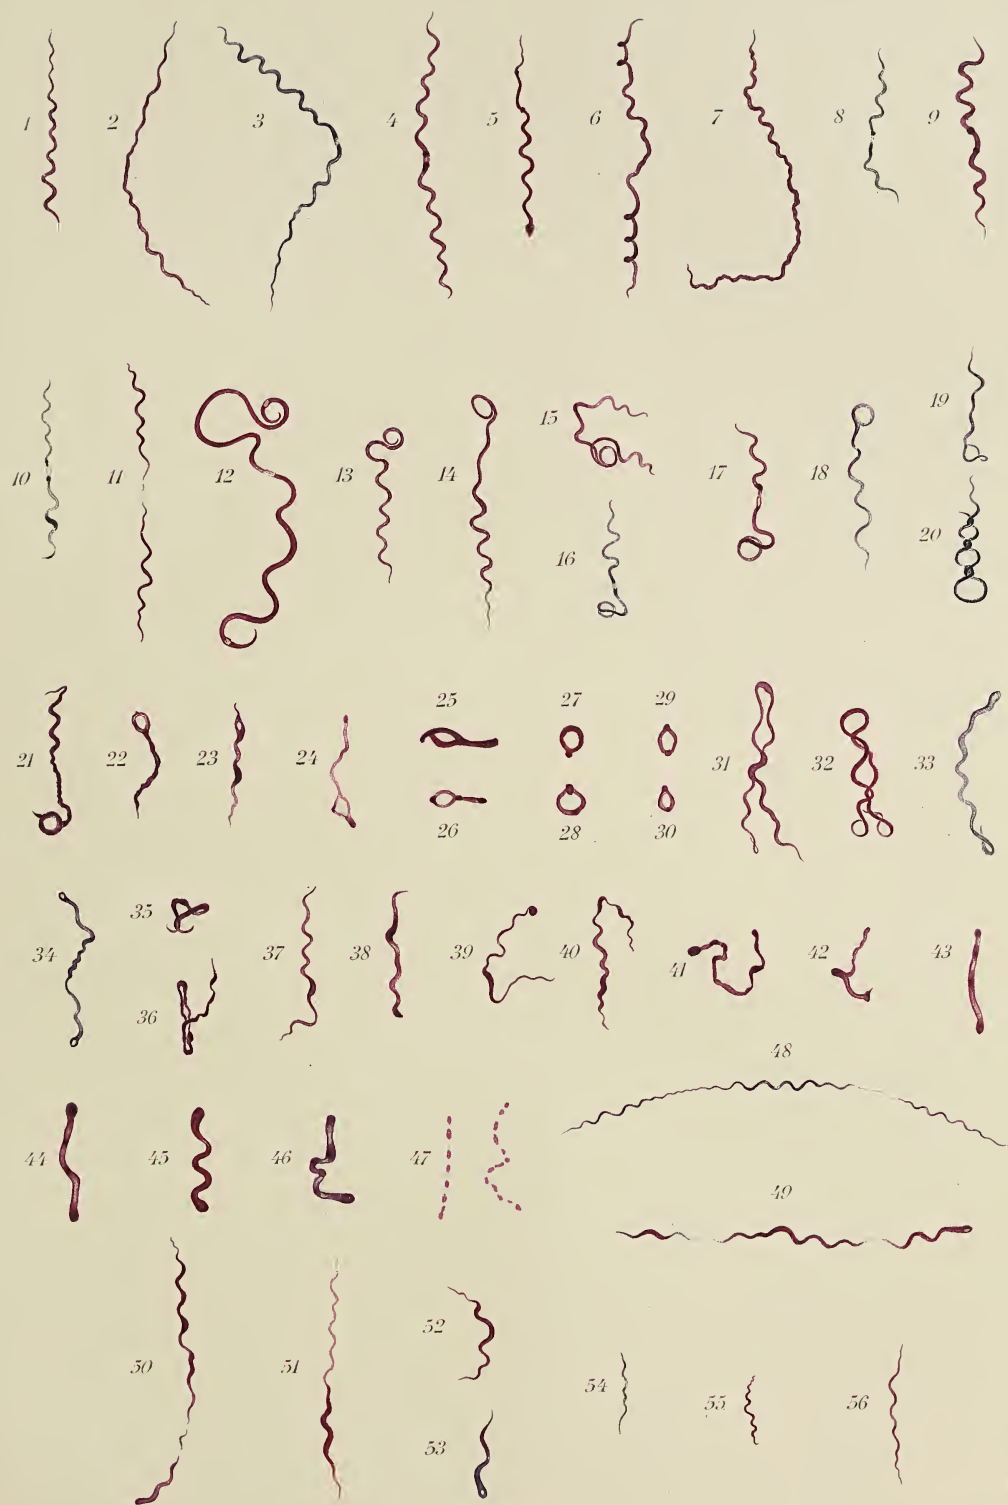 1 2 3 4 5 6 7 8 9
10 11 12 13 14 15 16 17 18 19 20
21 22 23 24 25 26 27 28 29 30 31 32 33
34 35 36 37 38 39 40 41 42 43
44 45 46 47 48 49
50 51 52 53 54 55 56